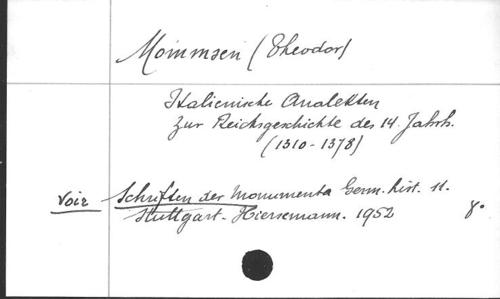 Mommsen (Theodor)
Italienische Analekten
zur Reichsgeschichte des 14. Jahrh.
(1310-1378)
Voir Schriften der Monumenta Germ. hist. 11.
Stuttgart. Hiersemann. 1952 8°